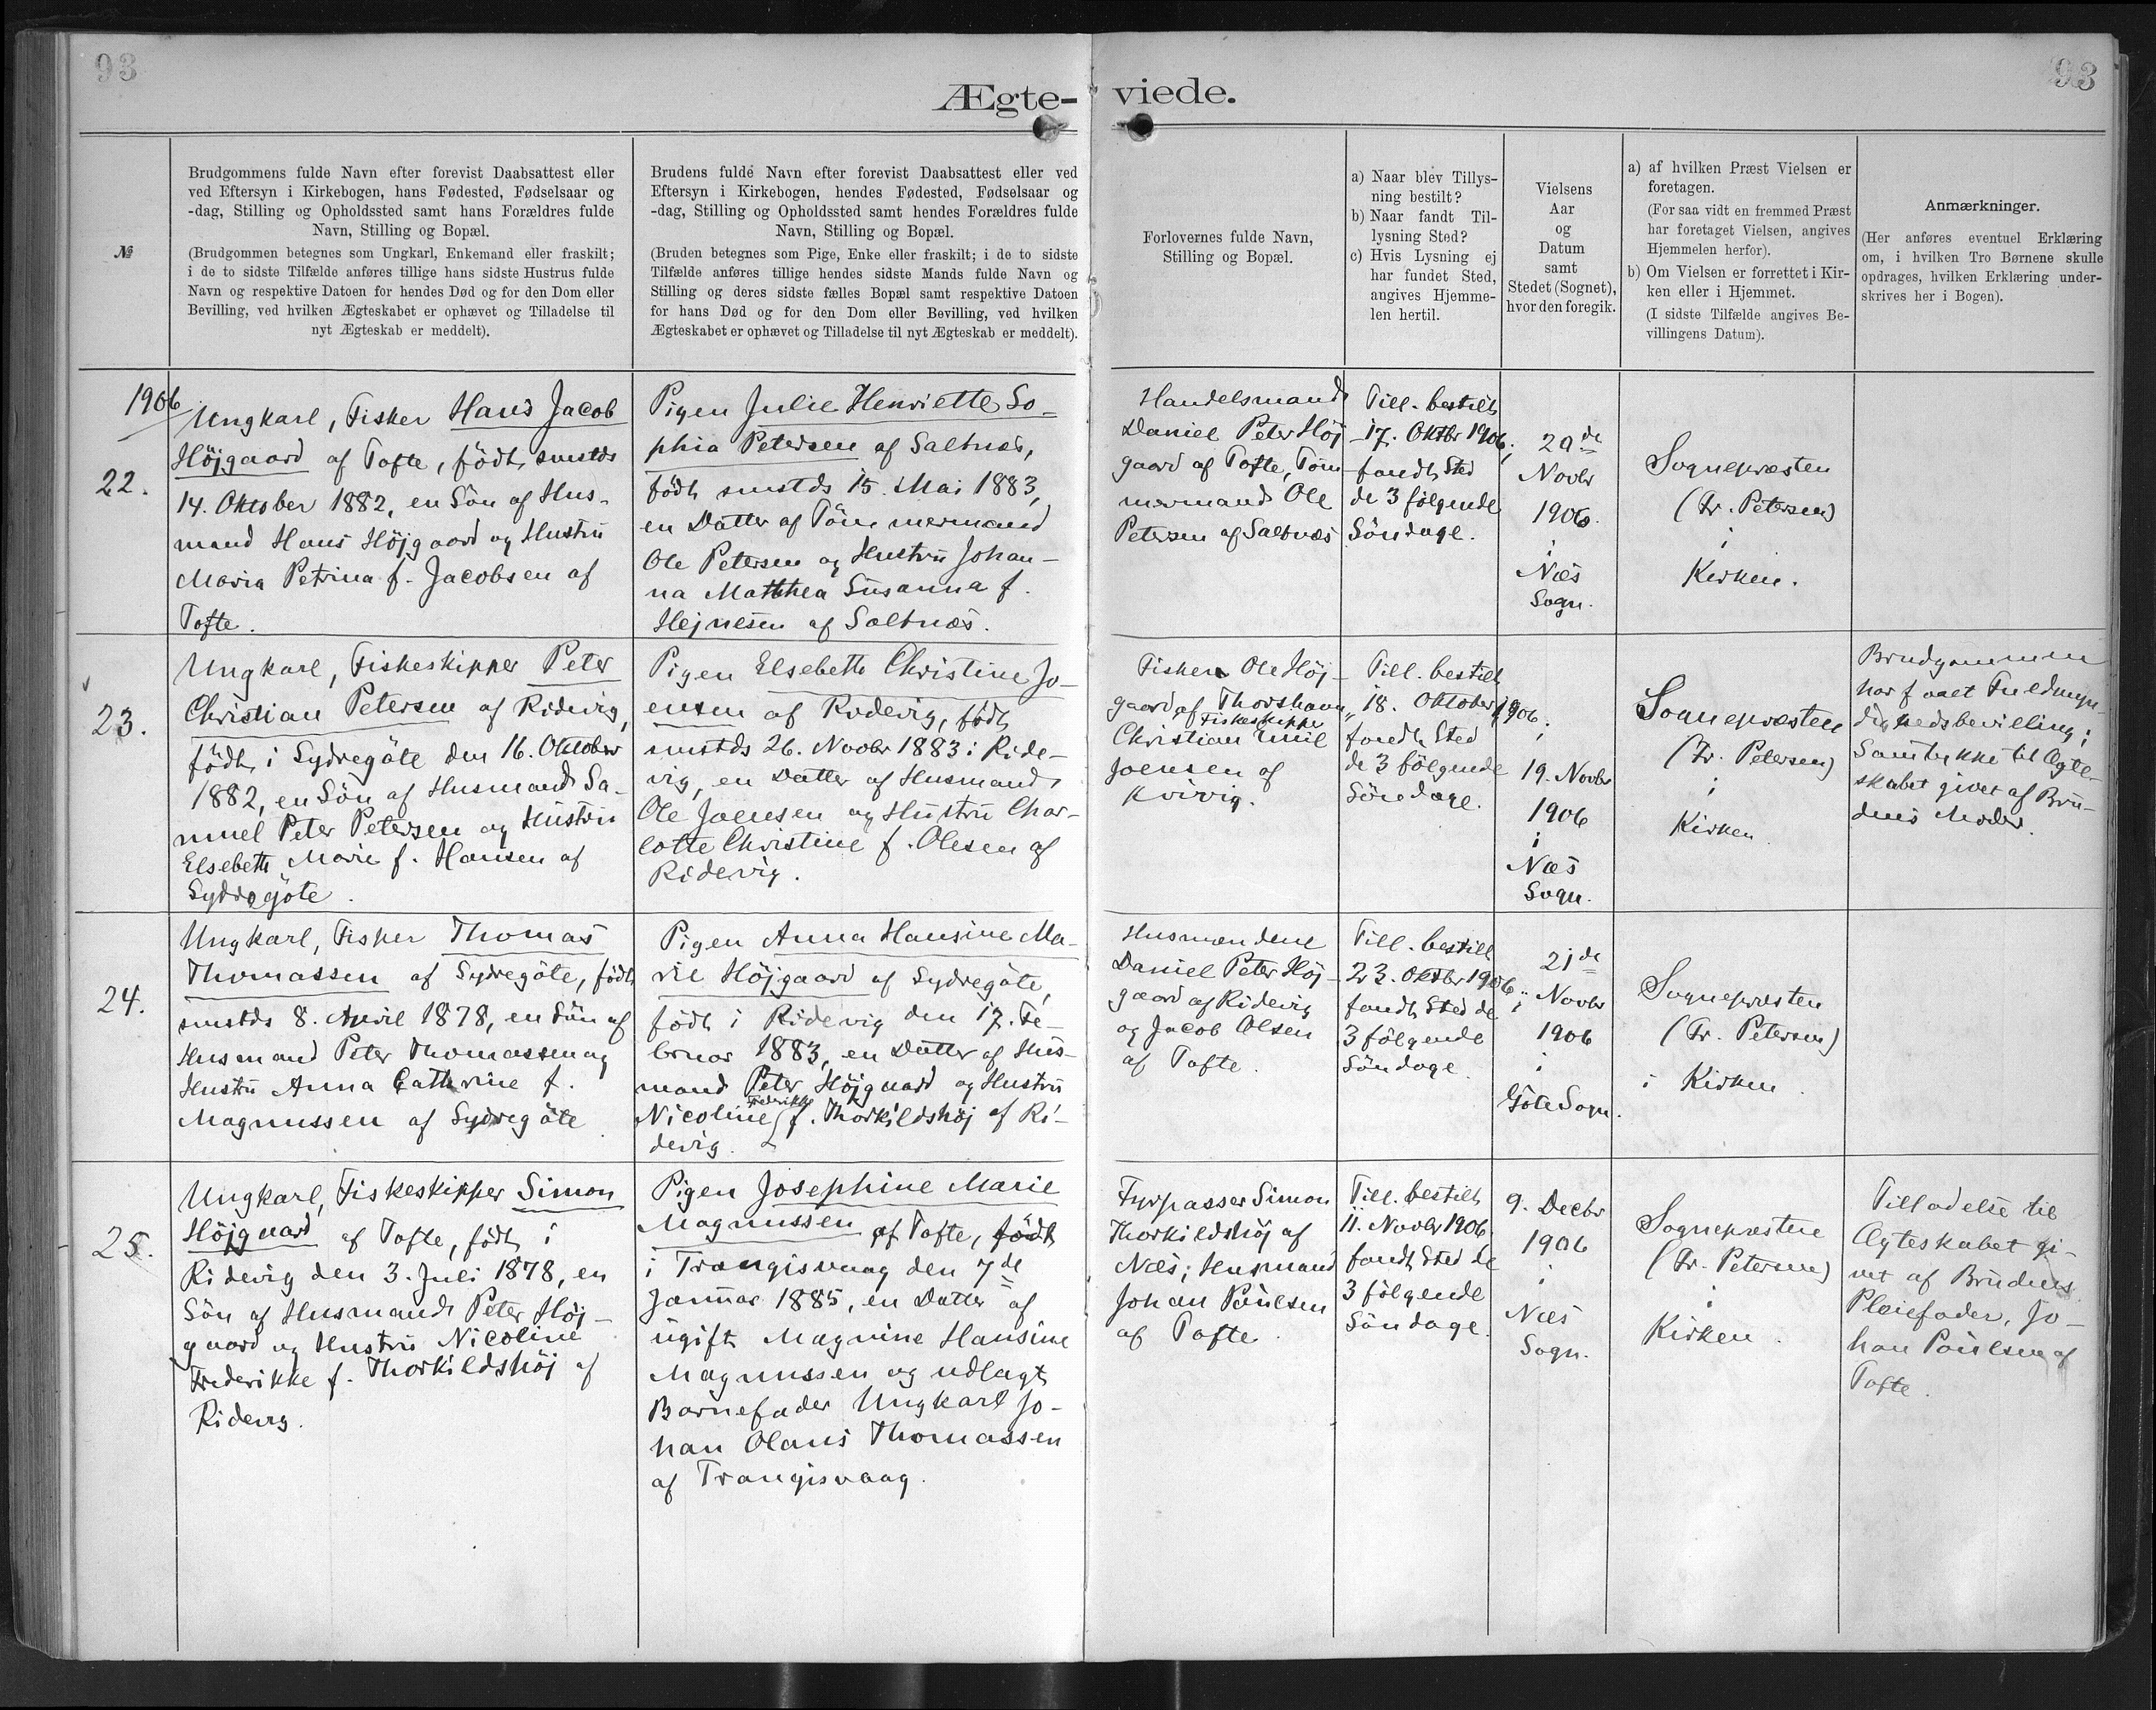 93
93
Ægte-
viede.
№
Brudgommens fulde Navn efter forevist Daabsattest eller
ved Eftersyn i Kirkebogen, hans Fødested, Fødselsaar og
-dag, Stilling og Opholdssted samt hans Forældres fulde
Navn, Stilling og Bopæl.
(Brudgommen betegnes som Ungkarl, Enkemand eller fraskilt;
i de to sidste Tilfælde anføres tillige hans sidste Hustrus fulde
Navn og respektive Datoen for hendes Død og for den Dom eller
Bevilling, ved hvilken Ægteskabet er ophævet og Tilladelse til
nyt Ægteskab er meddelt).
Brudens fulde Navn efter forevist Daabsattest eller ved
Eftersyn i Kirkebogen, hendes Fødested, Fødselsaar og
-dag, Stilling og Opholdssted samt hendes Forældres fulde
Navn, Stilling og Bopæl.
(Bruden betegnes som Pige, Enke eller fraskilt; i de to sidste
Tilfælde anføres tillige hendes sidste Mands fulde Navn og
Stilling og deres sidste fælles Bopæl samt respektive Datoen
for hans Død og for den Dom eller Bevilling, ved hvilken
Ægteskabet er ophævet og Tilladelse til nyt Ægteskab er meddelt).
Forlovernes fulde Navn,
Stilling og Bopæl.
a) Naar blev Tillys-
ning bestilt?
b) Naar fandt Til-
lysning Sted?
c) Hvis Lysning ej
har fundet Sted,
angives Hjemme-
len hertil.
Vielsens
Aar
og
Datum
samt
Stedet (Sognet),
hvor den foregik.
a) af hvilken Præst Vielsen er
foretagen.
(For saa vidt en fremmed Præst
har foretaget Vielsen, angives
Hjemmelen herfor).
b) Om Vielsen er forrettet i Kir-
ken eller i Hjemmet.
(I sidste Tilfælde angives Be-
villingens Datum).
Anmærkninger.
(Her anføres eventuel Erklæring
om, i hvilken Tro Børnene skulle
opdrages, hvilken Erklæring under-
skrives her i Bogen).
1906
22.
Ungkarl, Fisker Hans Jacob
Höjgaard af Tofte, födt smstds
14. Oktober 1882, en Sön af Hus-
mand Hans Höjgaard og Hustru
Maria Petrina f. Jacobsen af
Tofte.
Pigen Julie Henriette So-
phia Petersen af Saltnæs,
födt smstds 15. Mai 1883,
en Datter af Tömmermand
Ole Petersen og Hustru Johan-
na Matthea Susanna f.
Hejnesen af Saltnæs.
Handelsmand
Daniel Peter Höj-
gaard af Tofte, Töm-
mermand Ole
Petersen af Saltnæs
Till. bestilt
17. Oktbr 1906,
fandt Sted
de 3 fölgende
Söndage.
29de
Novbr
1906.
i
Næs
Sogn.
Sognepræsten
(Fr. Petersen)
i
Kirken.
23.
Ungkarl, Fiskeskipper Peter
Christian Petersen af Ridevig,
födt i Sydregöte den 16. Oktober
1882, en Sön af Husmand Sa-
muel Peter Petersen og Hustru
Elsebeth Marie f. Hansen af
Sydregöte.
Pigen Elsebeth Christine Jo-
ensen af Ridevig, födt
smstds 26. Novbr 1883 i Ride-
vig, en Datter af Husmand
Ole Joensen og Hustru Char-
lotte Christine f. Olesen af
Ridevig.
Fisker Ole Höj-
gaard af Thorshavn,
Fiskeskipper
Christian Emil
Joensen af
Kvivig.
Till. bestilt
18. Oktober 1906;
fandt Sted
de 3 fölgende
Söndage.
19. Novbr
1906
i
Næs
Sogn.
Sognepræsten
(Fr. Petersen)
i
Kirken
Brudgommen
har faaet Fuldmyn-
dighedsbevilling;
Samtykke til Ægte-
skabet givet af Bru-
dens Moder.
24.
Ungkarl, Fisker Thomas
Thomassen af Sydregöte, födt
smstds 8. April 1878, en Sön af
Husmand Peter Thomassen og
Hustru Anna Cathrine f.
Magnussen af Sydregöte
Pigen Anna Hansine Ma-
rie Höjgaard af Sydregöte,
födt i Ridevig den 17. Fe-
bruar 1883, en Datter af Hus-
mand Peter Höjgaard og Hustru
Frederikke
Nicoline f. Thorkildshöj af Ri-
devig.
Husmændene
Daniel Peter Höj-
gaard af Ridevig
og Jacob Olsen
af Tofte.
Till. bestilt
23. Oktbr 1906;
fandt Sted de
3 fölgende
Söndage
21de
Novbr
1906
i
Göte Sogn.
Sognepræsten
(Fr. Petersen)
i Kirken
25.
Ungkarl, Fiskeskipper Simon
Höjgaard af Tofte, födt i
Ridevig den 3. Juli 1878, en
Sön af Husmand Peter Höj-
gaard og Hustru Nicoline
Frederikke f. Thorkildshöj af
Ridevig.
Pigen Josephine Marie
Magnussen af Tofte, födt
i Trangisvaag den 7de
Januar 1885, en Datter af
ugift Magnine Hansine
Magnussen og udlagt
Barnefader Ungkarl Jo-
han Olaus Thomassen
af Trangisvaag.
Fyrpasser Simon
Thorkildshöj af
Næs; Husmand
Johan Poulsen
af Tofte.
Till. bestilt
11. Novbr 1906
fandt Sted de
3 fölgende
Söndage.
9. Decbr
1906
i
Næs
Sogn.
Sognepræsten
(Fr. Petersen)
i
Kirken.
Tilladelse til
Ægteskabet gi-
vet af Brudens
Pleiefader, Jo-
han Poulsen af
Tofte.